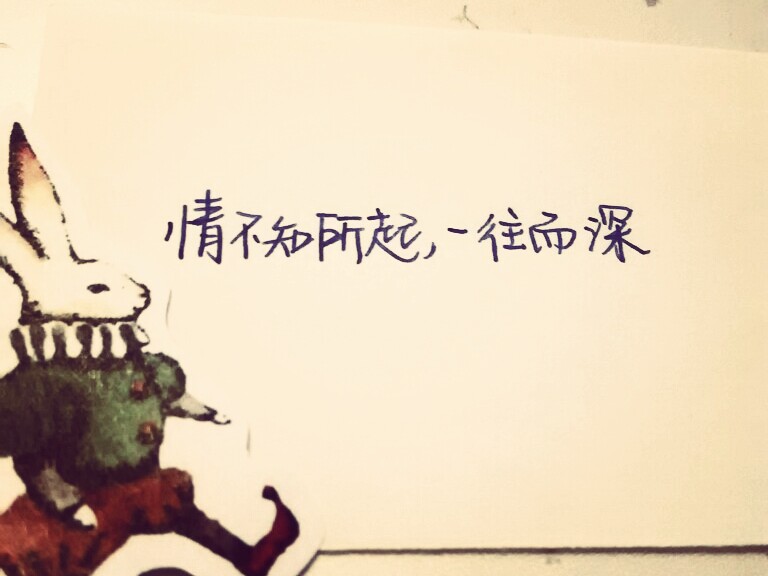 情不知所起,一往而深